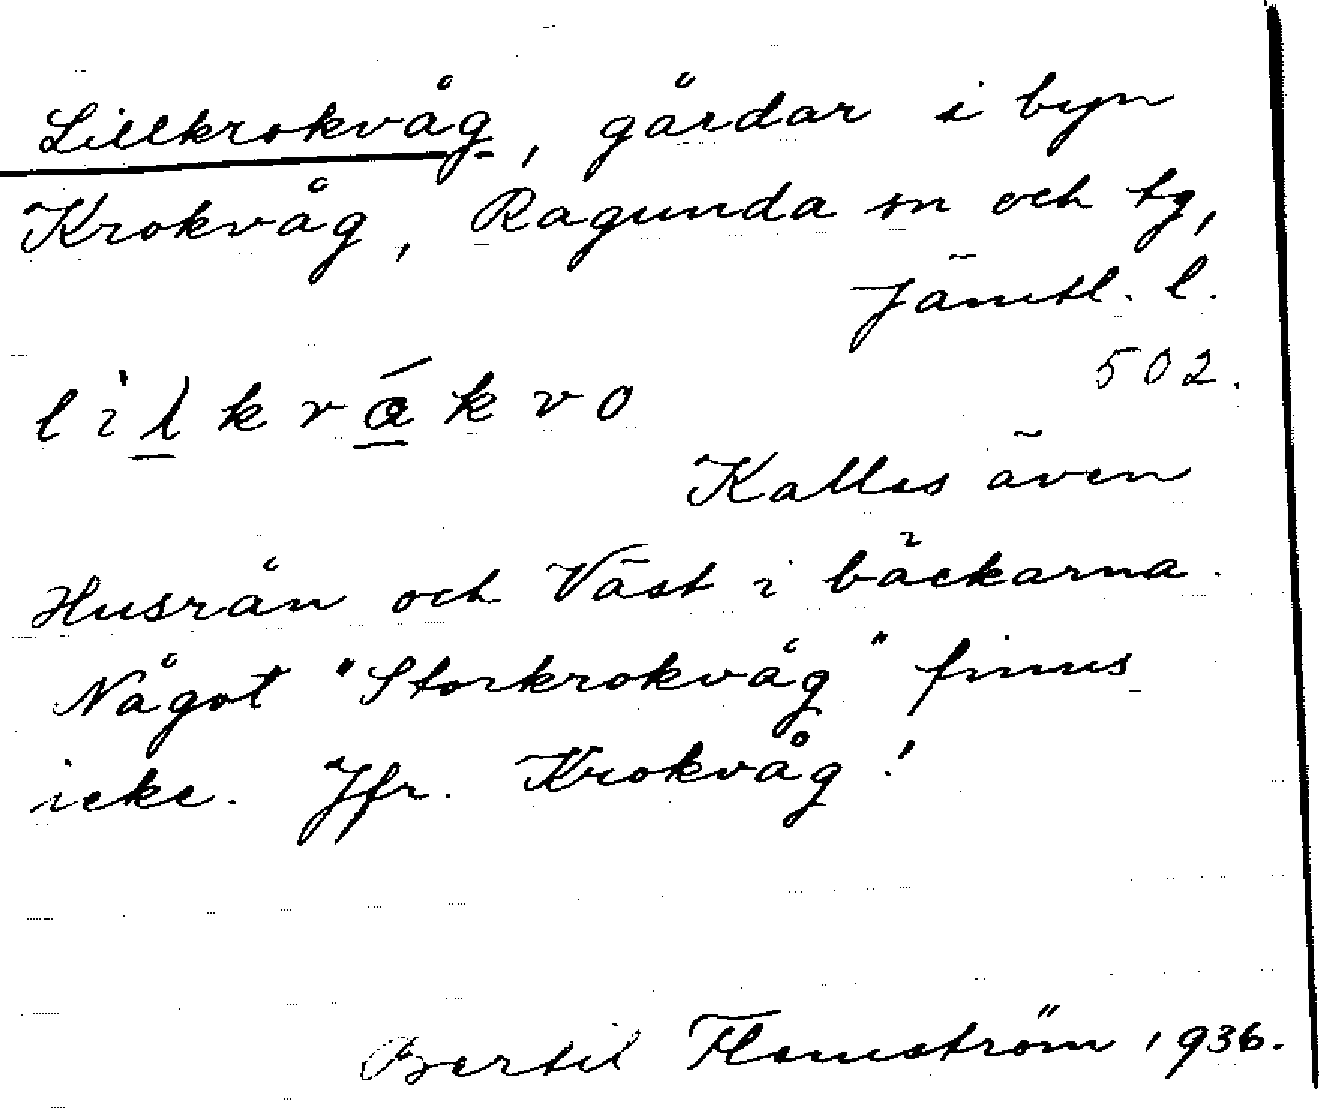 Lillkrokvåg, gårdar i byn
Krokvåg, Ragunda sn och tg,
Jämtl. l.
502.
lìlkrákvo
Kallas även
Husrån och Väst i bäckarna.
Något "Storkrokvåg" finns
icke. Jfr. Krokvåg!
Bertil Flemström 1936.